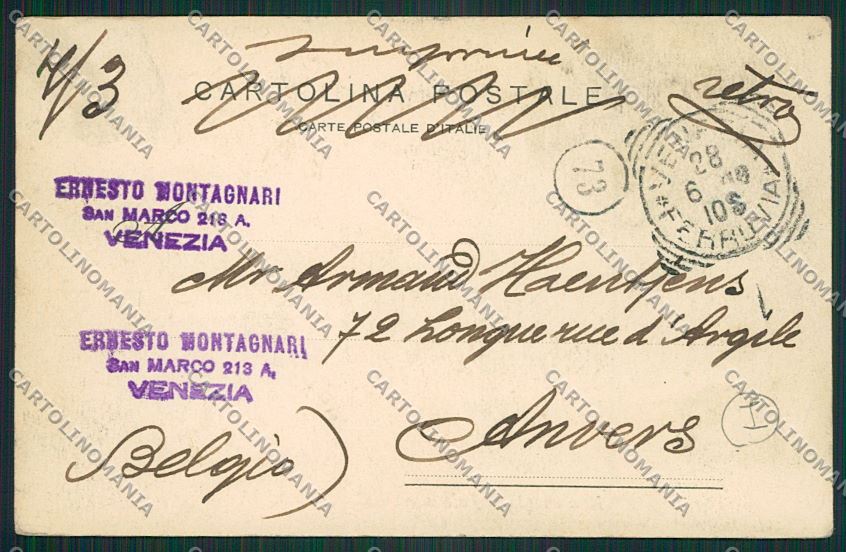 4/3
CARTOLINA POSTALE
retro
CARTE POSTALE D'ITALIE
73
FERROVIA
ERNESTO MONTAGNARI
SAN MARCO 213 A.
VENEZIA
Mr. Armand Haentjens
72 Longue rue d'Argile
ERNESTO MONTAGNARI
SAN MARCO 213 A.
VENEZIA
Anvers
Belgio)
CARTOLINOMANIA